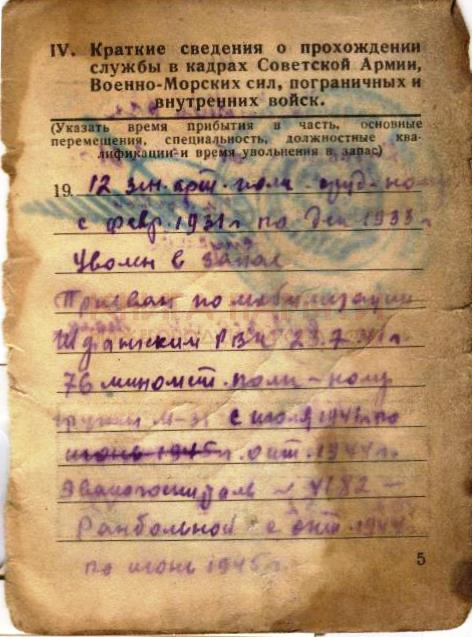 IV. Краткие сведения о прохождении
службы в кадрах Советской Армии,
Военно-Морских сил, пограничных и
внутренних войск.
(Указать время прибытия в часть, основные
перемещения, специальность, должностные ква-
лификации и время увольнения в запас)
19 12 зен. арт. полк
с февр. 1931г по Дек 1933 г
Уволен в запас
Призван по мобилизации
РВК 23.7.41г.
76 миномет. полк – ном.
М-31 с июля 1941г. по
июнь 1945г. окт. 1944г.
Эвакогоспиталь – 4182 –
Ранбольной с окт 1944
по июнь 1945 г.
5